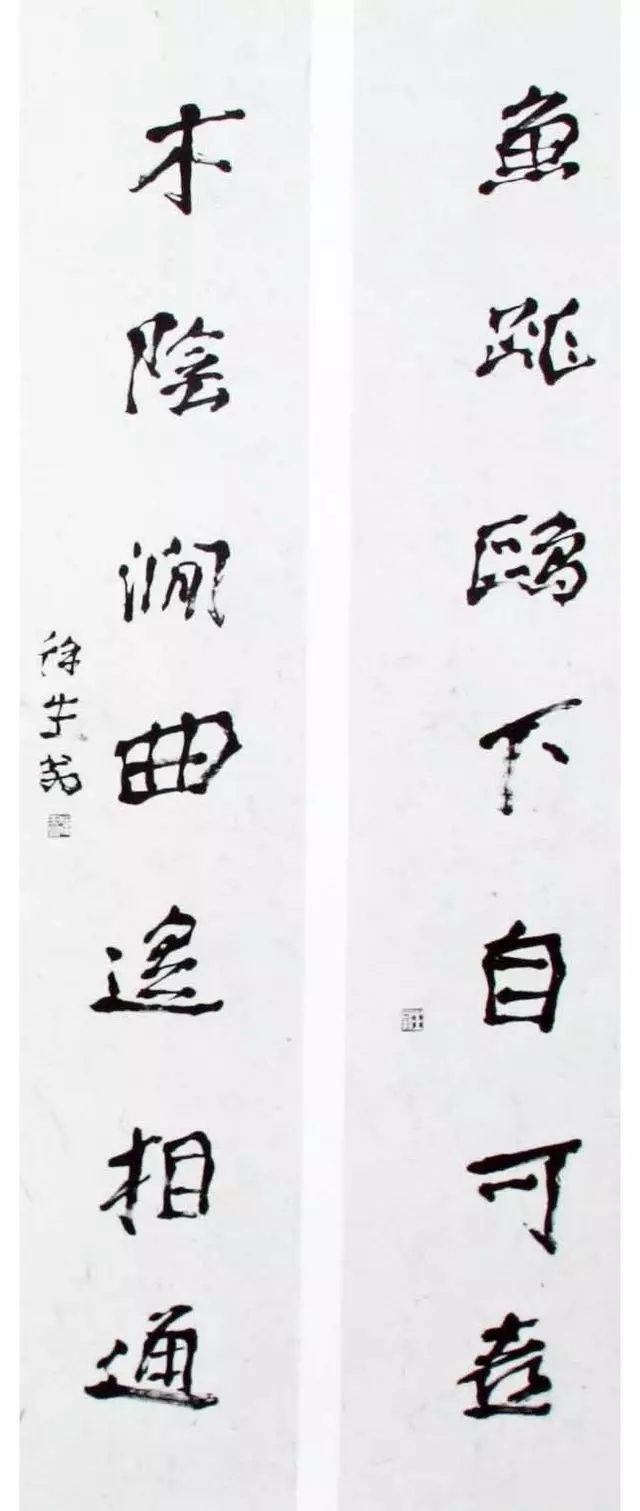 魚跳鷗下自可喜
木陰澗曲遙相通
徐生翁